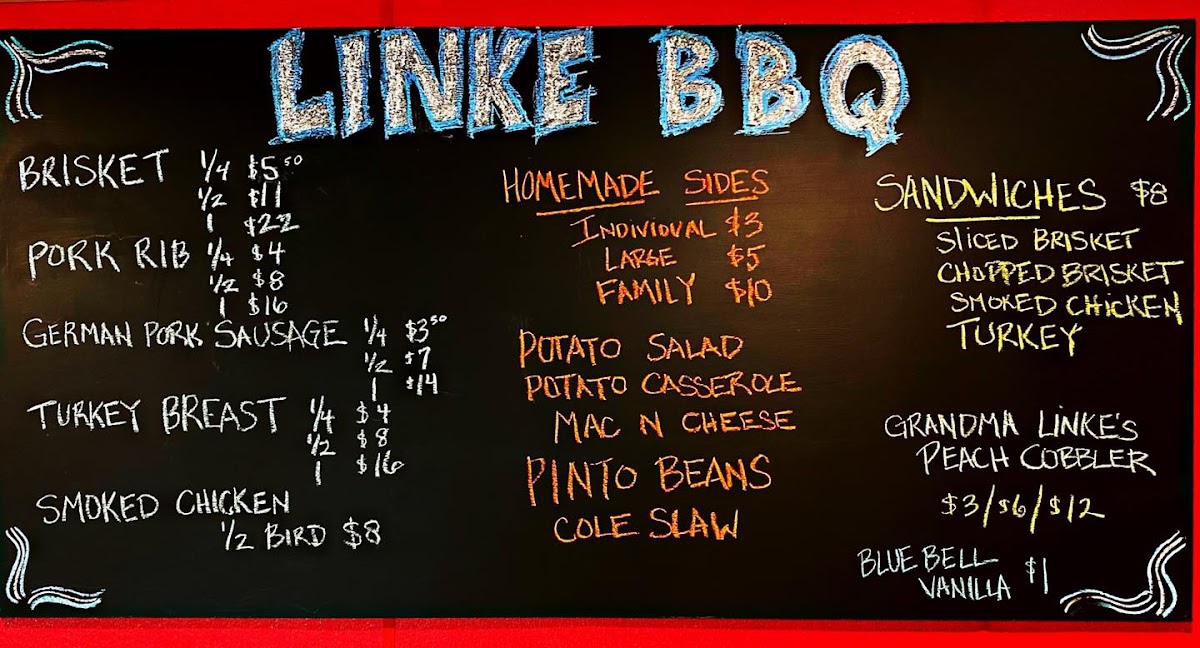 LINKE BBQ
BRISKET 1/4 $5.50
1/2 $11
1 $22
PORK RIB 1/4 $4
1/2 $8
1 $16
GERMAN PORK SAUSAGE 1/4 $3.50
1/2 $7
1 $14
TURKEY BREAST 1/4 $4
1/2 $8
1 $16
SMOKED CHICKEN
1/2 BIRD $8
HOMEMADE SIDES
INDIVIDUAL $3
LARGE $5
FAMILY $10
POTATO SALAD
POTATO CASSEROLE
MAC N CHEESE
PINTO BEANS
COLE SLAW
SANDWICHES $8
SLICED BRISKET
CHOPPED BRISKET
SMOKED CHICKEN
TURKEY
GRANDMA LINKE'S
PEACH COBBLER
$3/$6/$12
BLUE BELL
VANILLA $1